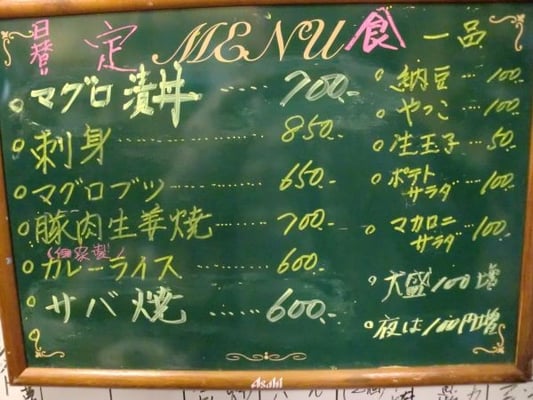 日替 定 MENU 食 一品
○マグロ漬丼 ……… 700.-
○刺身 ……… 850.-
○マグロブツ ……… 650.-
○豚肉生姜焼 ……… 700.-
(自家製)
○カレーライス ……… 600.-
○サバ焼 ……… 600.-
○
○納豆 … 100.
○やっこ … 100.
○生玉子 … 50.
○ポテトサラダ … 100.
○マカロニサラダ … 100.
○大盛100増
○夜は100円増
Asahi